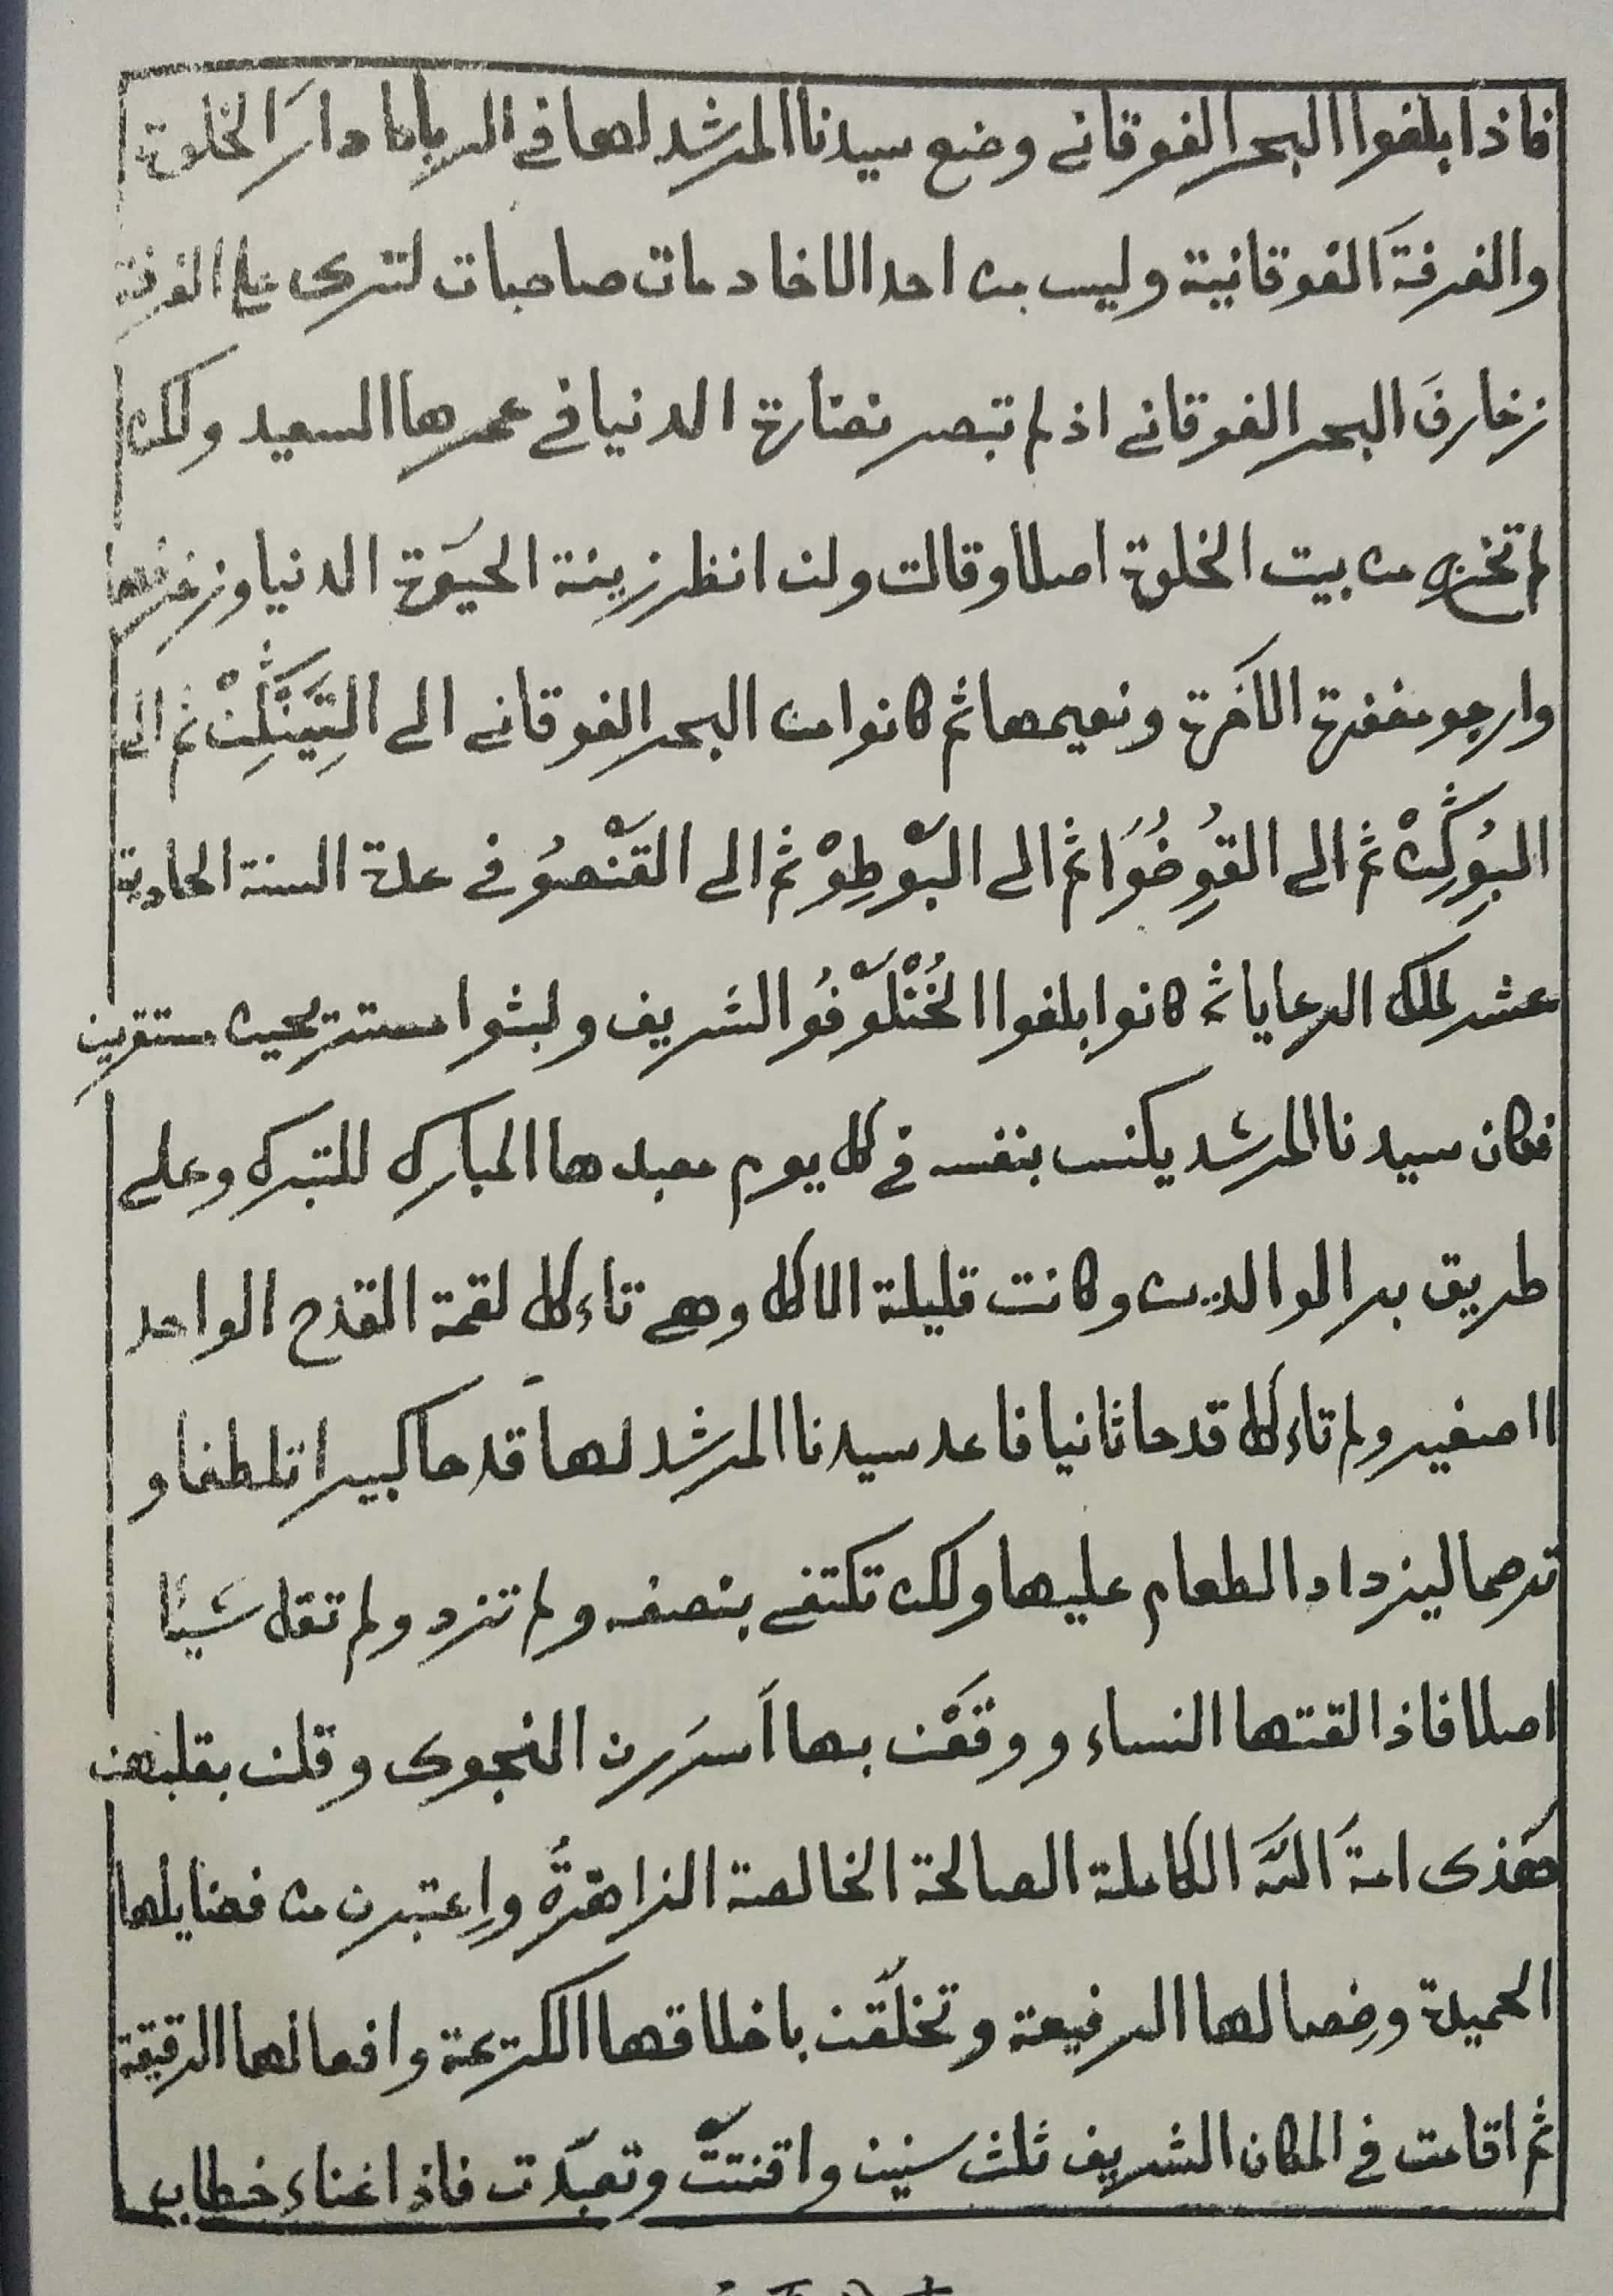 فاذا بلغوا البحر الفوقاني وضع سيدنا المرشد لها في الرباطا دارَ الخلوة
والغرفةَ الفوقانية وليس من احد الا خادمات صاحبات لترى على الغرفة
زخارفَ البحر الفوقاني اذ لم تبصر نضارة الدنيا في عمرها السعيد ولكن
لم تخرج من بيت الخلوة اصلا وقالت ولن انظر زينة الحيَوة الدنيا وزخرفها
وارجو مغفرة الآخرة ونعيمها ثم كانوا من البحر الفوقاني الى ثم الى
ثم الى ثم الى ثم الى في علة السنة الحادية
عشر لملك الرعايا ثم كانوا بلغوا الشريف ولبثوا مستريحين مستقرين
فكان سيدنا المرشد يكنس بنفسه في كل يوم معبدها المبارك للتبرك وعلى
طريق بر الوالدين وكانت قليلة الاكل وهي تاءكل لقمة القدح الواحد
ااصغير ولم تاءكل قدحا ثانيا فاعد سيدنا المرشد لها قدحا كبيرا تلطفا و
ترحما ليزداد الطعام عليها ولكن تكتفي بنصفه ولم تزد ولم تقل شيئا
اصلا فاذا لقتها النساء ووقَعْن بها اَسرَرن النجوى وقلن بقلبهن
هَذى امةَ اللّه الكاملة الصالحة الخالصة الزاهرةُ واِعتبرن من فضايلها
الحميدة وخِصالها الرفيعة وتخلّقن باخلاقها الكريمة وافعالها الرقيقة
ثم اقامت في المكان الشريف ثلث سنين واقنتتْ وتعبّدت فاذا غناء خطاب